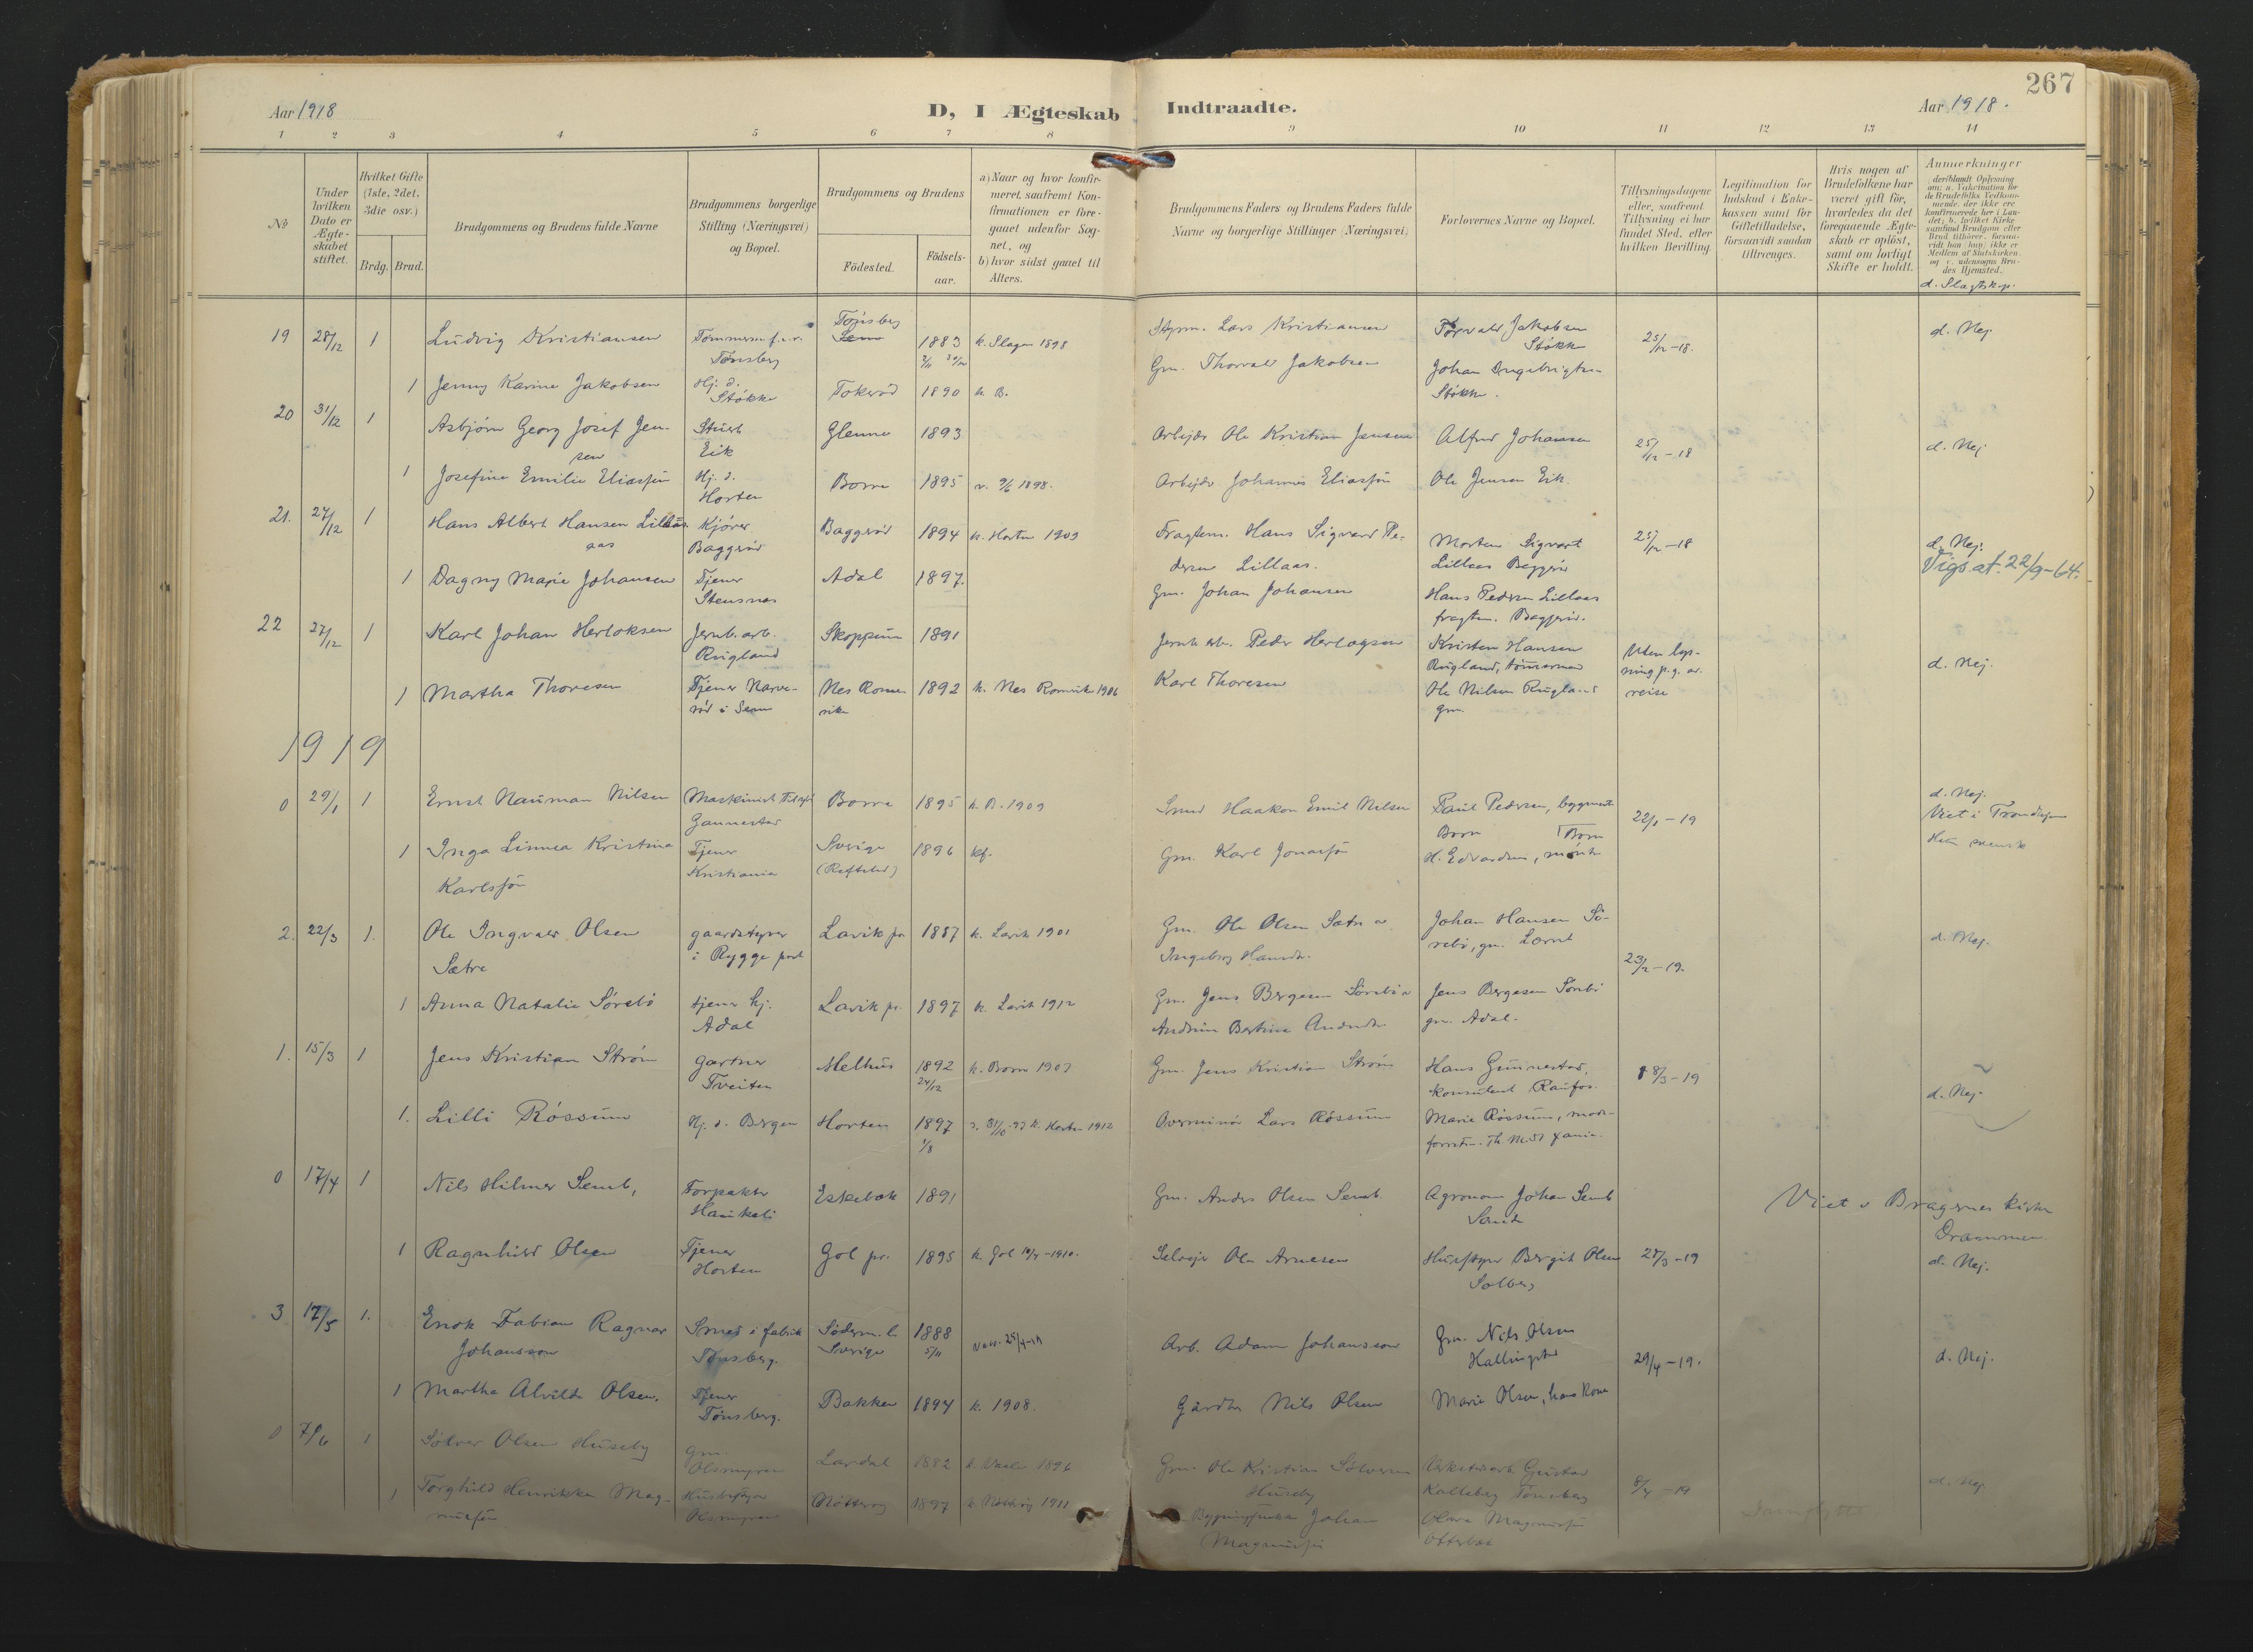 267
Aar 1918
D, I Ægteskab Indtraadte.
Aar 1918.
1 2 3 4 5 6 7 8 9 10 11 12 13 14
№
Under hvilken Dato er Ægte-skabet stiftet.
Hvilket Gifte (1ste, 2det, 3die osv.)
Brdg. Brud.
Brudgommens og Brudens fulde Navne
Brudgommens borgerlige Stilling (Næringsvei) og Bopæl.
Brudgommens og Brudens
Födested.
Födsels-aar.
a) Naar og hvor konfir-meret, saafremt Kon-firmationen er fore-gaaet udenfor Sog-net, og
b) hvor sidst gaaet til Alters.
Brudgommens Faders og Brudens Faders fulde Navne og borgerlige Stillinger (Næringsvei)
Forlovernes Navne og Bopæl.
Tillysningsdagene eller, saafremt Tillysning ei har fundet Sted, efter hvilken Bevilling.
Legitimation for Indskud i Enke-kassen samt for Giftetilladelse, forsaavidt saadan tiltrænges.
Hvis nogen af Brudefolkene har været gift för, hvorledes da det foregaaende Ægte-skab er oplöst, samt om lovligt Skifte er holdt.
Anmerkninger
deriblandt Oplysning om: a. Vakcination for de Brudefolks Vedkom-mende, der ikke ere konfirmerede her i Lan-det; b. hvilket Kirke-samfund Brudgom eller Brud tilhörer, forsaa-vidt han (hun) ikke er Medlem af Statskirken, og c. udensogns Bru-des Hjemsted.
d. Slagtskap.
19 28/12 1 Ludvig Kristiansen
Tønsberg
Tønsberg Sem 1883 k. Slagen 1898
Lars Kristiansen
Torvald Jakobsen Stokke
25/12-18.
d. Nej.
1 Jenny Karine Jakobsen
Hj. d. Stokke
1890 k. B.
Gm. Thorvald Jakobsen
Johan Stokke.
20 31/12 1 Asbjørn Georg Josef Jen-sen
Stuert Eik
Glenne 1893
Arbejder Ole Kristian Jensen
Alfred Johansen
25/12-18
d. Nej
1 Josefine Emilie Eliassön
Hj. d. Horten
Borre 1895 v. 9/6 1898.
Arbejder Johannes Eliassön
Ole Jensen Eik.
21. 27/12 1 Hans Albert Hansen Lillaas
Kjører Baggerød
Baggerød 1894 k. Horten 1909
Fragtem. Hans Sigvard Pe-dersen Lillaas.
Morten Sigvart Lillaas Baggerød
25/12-18
d. Nej.
Vigs.at. 22/9-64.
1 Dagny Marie Johansen
Tjener Stensnes
Adal 1897.
Gm. Johan Johansen
Hans Pedersen Lillaas fragtem. Baggerød.
22 27/12 1 Karl Johan Herloksen
Jernb. arb. Rugland
Skoppum 1891
Jernb. arb. Peder Herlogsen
Kristen Hansen Rugland, tømmermand
Uden lys-ning p. g. av. reise
d. Nej.
1 Martha Thoresen
Tjener Narve-rød i Sem
Nes Rome-rike 1892 k. Nes Romerike 1906
Karl Thoresen
Ole Nilsen Rugland gm.
1919
0 29/1 1 Ernst Nauman Nilsen
Maskinist Gannestad
Borre 1895 k. B. 1909
Smed Haakon Emil Nilsen
Paul Pedersen, bygmest Borre
22/1-19
d. Nej.
Viet i Trondhjem
1 Inga Linnea Kristina Karlssön
Tjener Kristiania
Sverige (Refteled) 1896 kf.
Gm. Karl Jonassön
H. Edvardsen, Borre
svensk
2. 22/3 1. Ole Ingvald Olsen Sætre
gaardstyrer i Rygge prst
Lavik pr 1887 k. Lavik 1901
Gm. Ole Olsen Sætre o Ingeborg Hansdr.
Johan Hansen Sö-rebö, gm.
23/2-19.
d. Nej.
1 Anna Natalie Sörebö
tjener hj. Adal
Lavik pr. 1897 k. Lavik 1912
Gm. Jens Bergesen Sörebö o Bertine
Jens Bergesen Sörebö gm. Adal.
1. 15/3 1 Jens Kristian Ström
gartner Tveiten
Melhus 1892 24/12 k. Borre 1907
Gm. Jens Kristian Ström
Hans Gunnestad, konsulent Raufos.
8/3-19
d. Nej.
1. Lilli Róssum
Hj. d. Bergen
Horten 1897 1/8 v. 31/10-97 k. Horten 1912
Lars Róssum
Marie Róssum,
0 17/4 1 Nils Hilmer Semb,
Forpakter Haukeli
Eskebæk 1891
Gm. Anders Olsen Semb.
Agronom Johan Semb Sande
Viet i Bragernes kirke Drammen.
1 Ragnhild Olsen
Tjener Horten
Gol pr. 1895 k. Gol 10/4-1910.
Selvejer Ole Arnesen
Husstyrer Bergit Olsen Solberg
27/3-19
d. Nej.
3 17/5 1. Enok Fabian Ragnar Johansson
Smed i fabrik Tønsberg.
Söderm. l. Sverige 1888 5/11
Arb. Adam Johansson
Gm. Nils Olsen
29/4-19.
d. Nej.
1 Martha Alvilde Olsen.
Tjener Tønsberg.
Bakken 1894 k. 1908.
Nils Olsen
Marie Olsen, hans kone
0 7/6 1 Sölver Olsen Huseby
gm.
Lardal 1882 1896
Gm. Ole Kristian Sölversen Huseby
Gustav Kalleberg Tønsberg
8/4-19
d. Nej
1 Torghild Henrikke Mag-nussön
Nötterøy 1897 k. Nötterøy 1911
Johan Magnussön
Magnussön